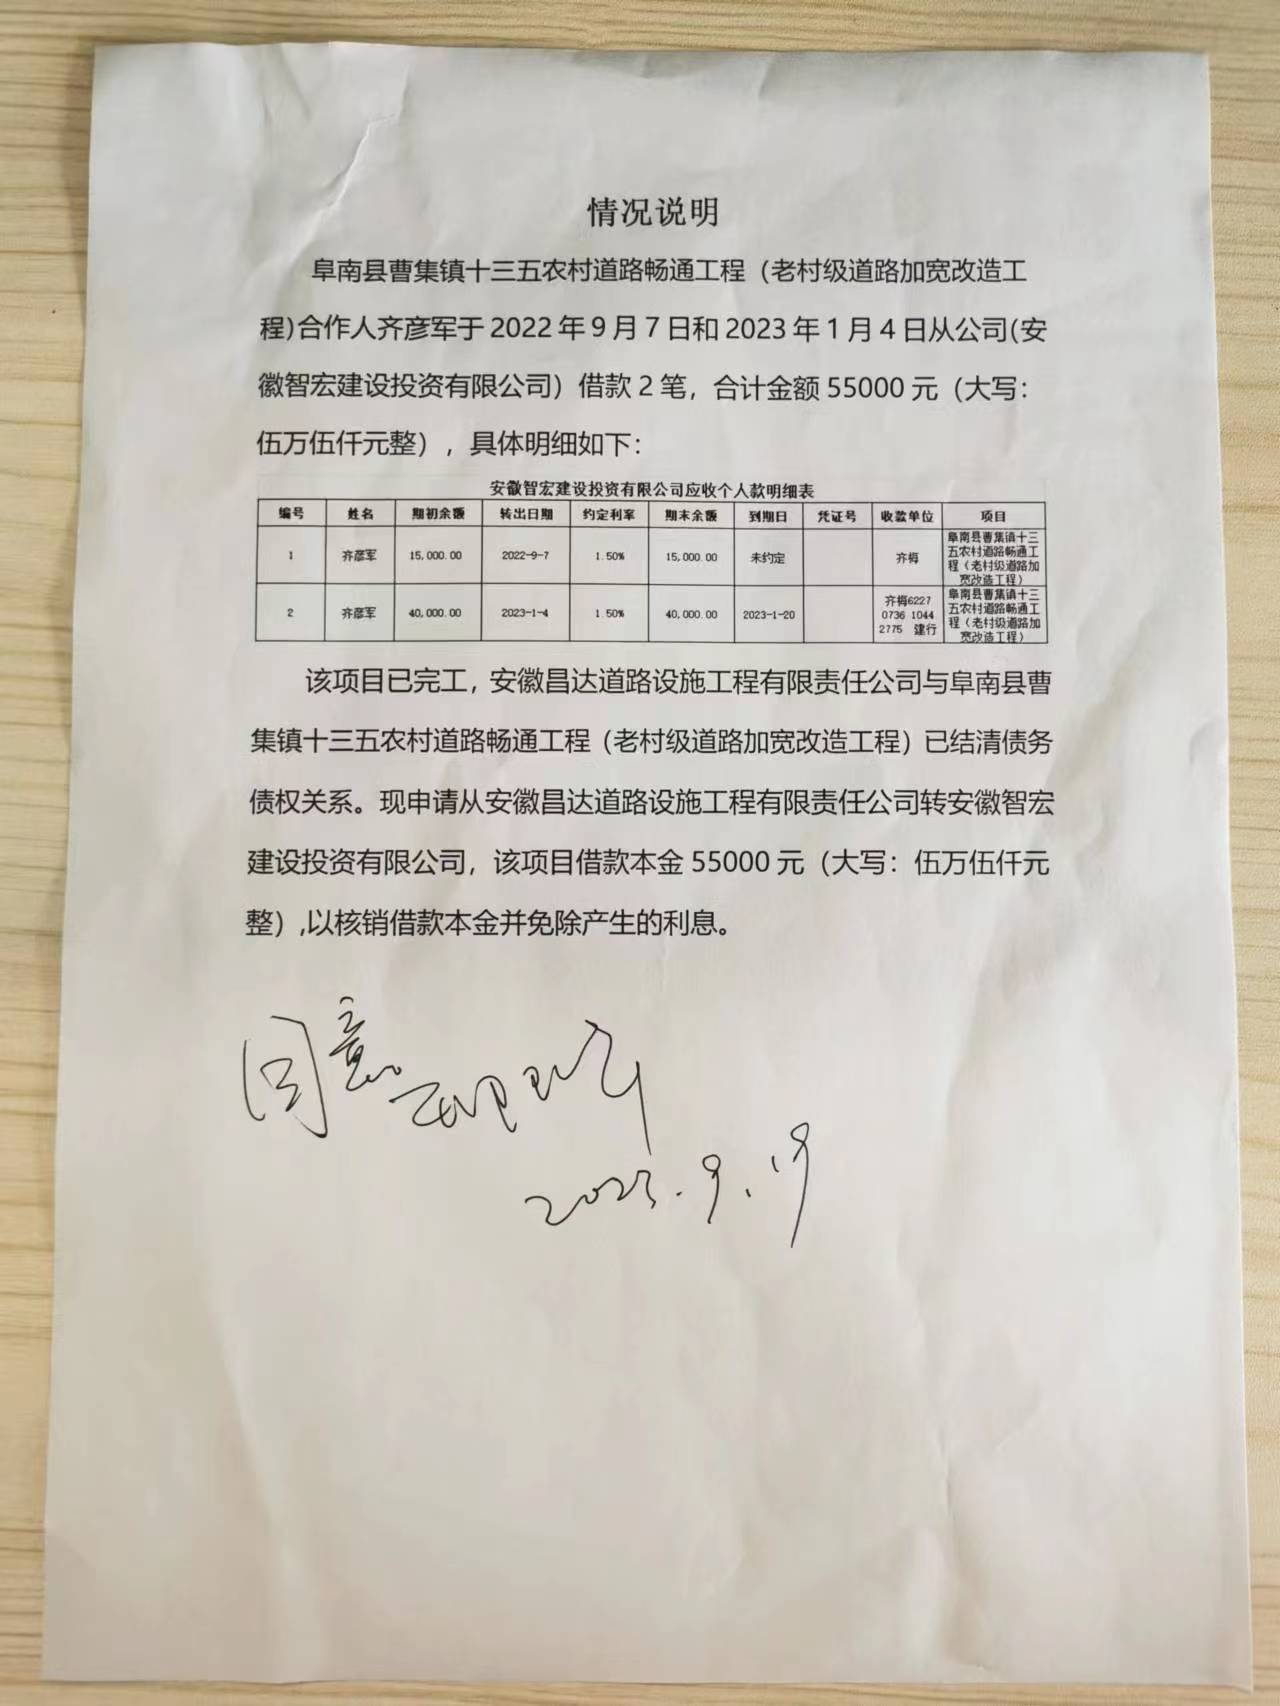 情况说明
阜南县曹集镇十三五农村道路畅通工程（老村级道路加宽改造工
程)合作人齐彦军于2022年9月7日和2023年1月4日从公司(安
徽智宏建设投资有限公司）借款2笔，合计金额55000元（大写：
伍万伍仟元整），具体明细如下：
安徽智宏建设投资有限公司应收个人款明细表
编号 姓名 期初余额 转出日期 约定利率 期末余额 到期日 凭证号 收款单位 项目
1 齐彦军 15,000.00 2022-9-7 1.50% 15,000.00 未约定 齐梅 阜南县曹集镇十三五农村道路畅通工程（老村级道路加宽改造工程）
2 齐彦军 40,000.00 2023-1-4 1.50% 40,000.00 2023-1-20 齐梅6227 0736 1044 2775 建行 阜南县曹集镇十三五农村道路畅通工程（老村级道路加宽改造工程）
该项目已完工，安徽昌达道路设施工程有限责任公司与阜南县曹
集镇十三五农村道路畅通工程（老村级道路加宽改造工程）已结清债务
债权关系。现申请从安徽昌达道路设施工程有限责任公司转安徽智宏
建设投资有限公司，该项目借款本金55000元（大写：伍万伍仟元
整）,以核销借款本金并免除产生的利息。
同意
2023.9.19